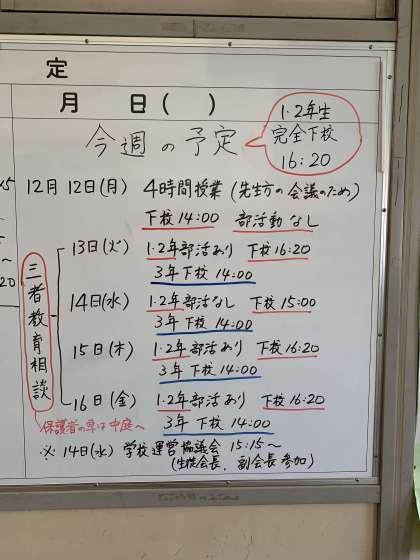 定
月 日( )
今週の予定
1・2年生
完全下校
16:20
12月12日(月) 4時間授業(先生方の会議のため)
下校14:00 部活動なし
三者教育相談
13日(火) 1・2年部活あり 下校16:20
3年下校14:00
14日(水) 1・2年部活なし 下校15:00
3年下校14:00
15日(木) 1・2年部活あり 下校16:20
3年下校14:00
16日(金) 1・2年部活あり 下校16:20
3年下校14:00
保護者の車は中庭へ
※14日(水) 学校運営協議会 15:15〜
(生徒会長、副会長参加)